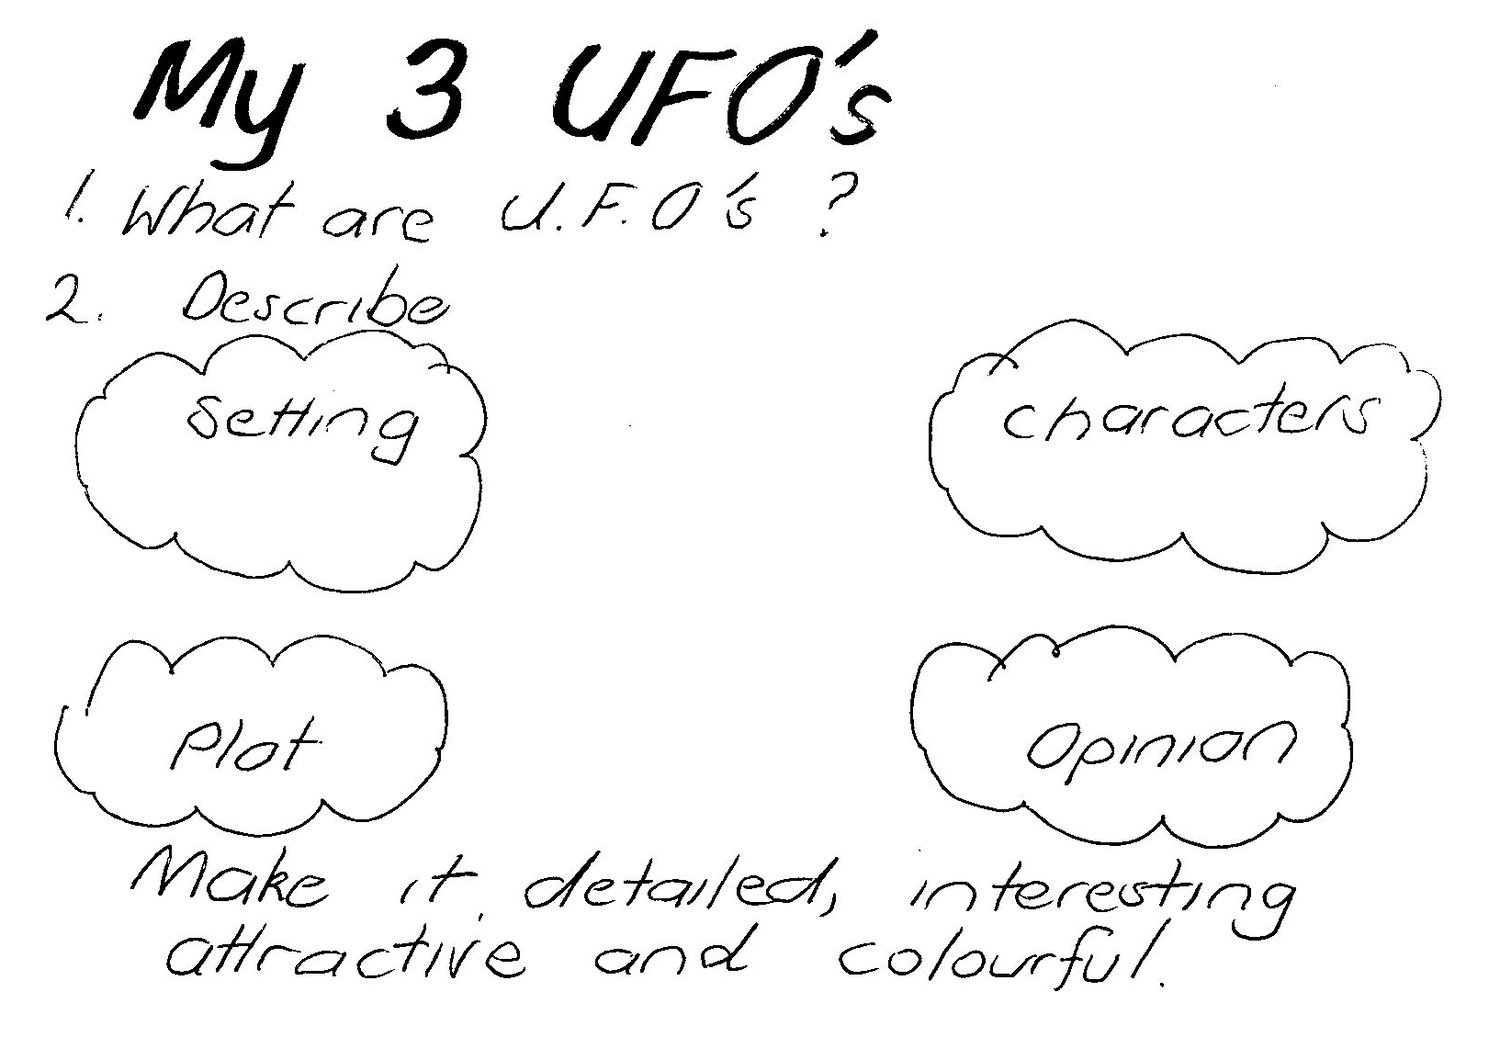 My 3 UFO's
1. What are U.F.O's ?
2. Describe
Setting
Characters
Plot
Opinion
Make it detailed, interesting
attractive and colourful.